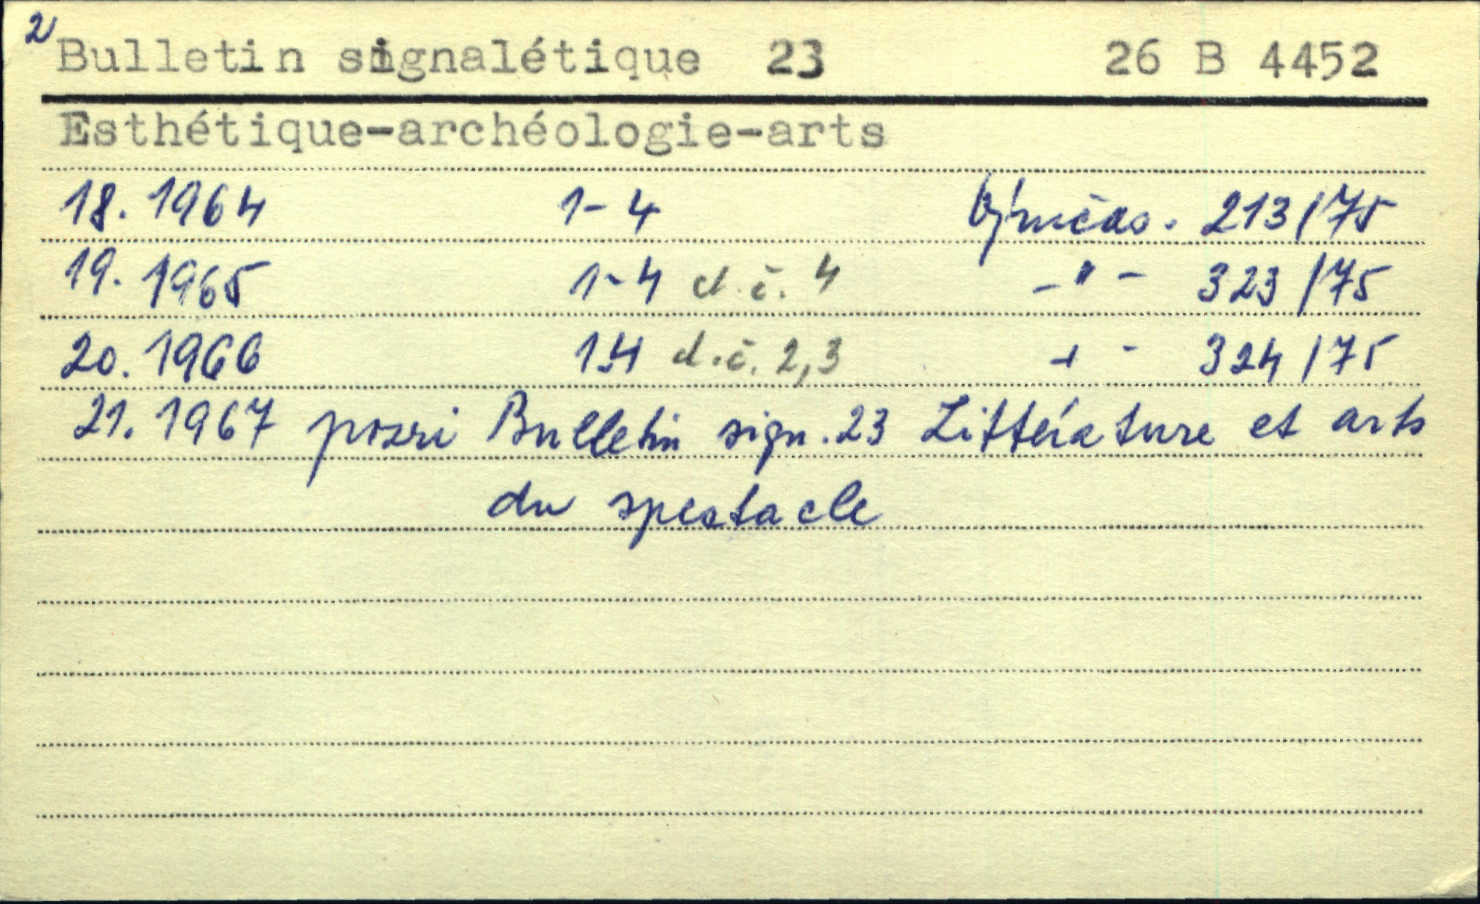 2
Bulletin signalétique 23 26 B 4452
Esthétique-archéologie-arts
18. 1964 1-4 213/75
19. 1965 1-4 d.č. 4 -"- 323/75
20. 1966 1-4 d.č. 2,3 -"- 324/75
21. 1967 pozri Bulletin sign. 23 Littérature et arts
du spectacle